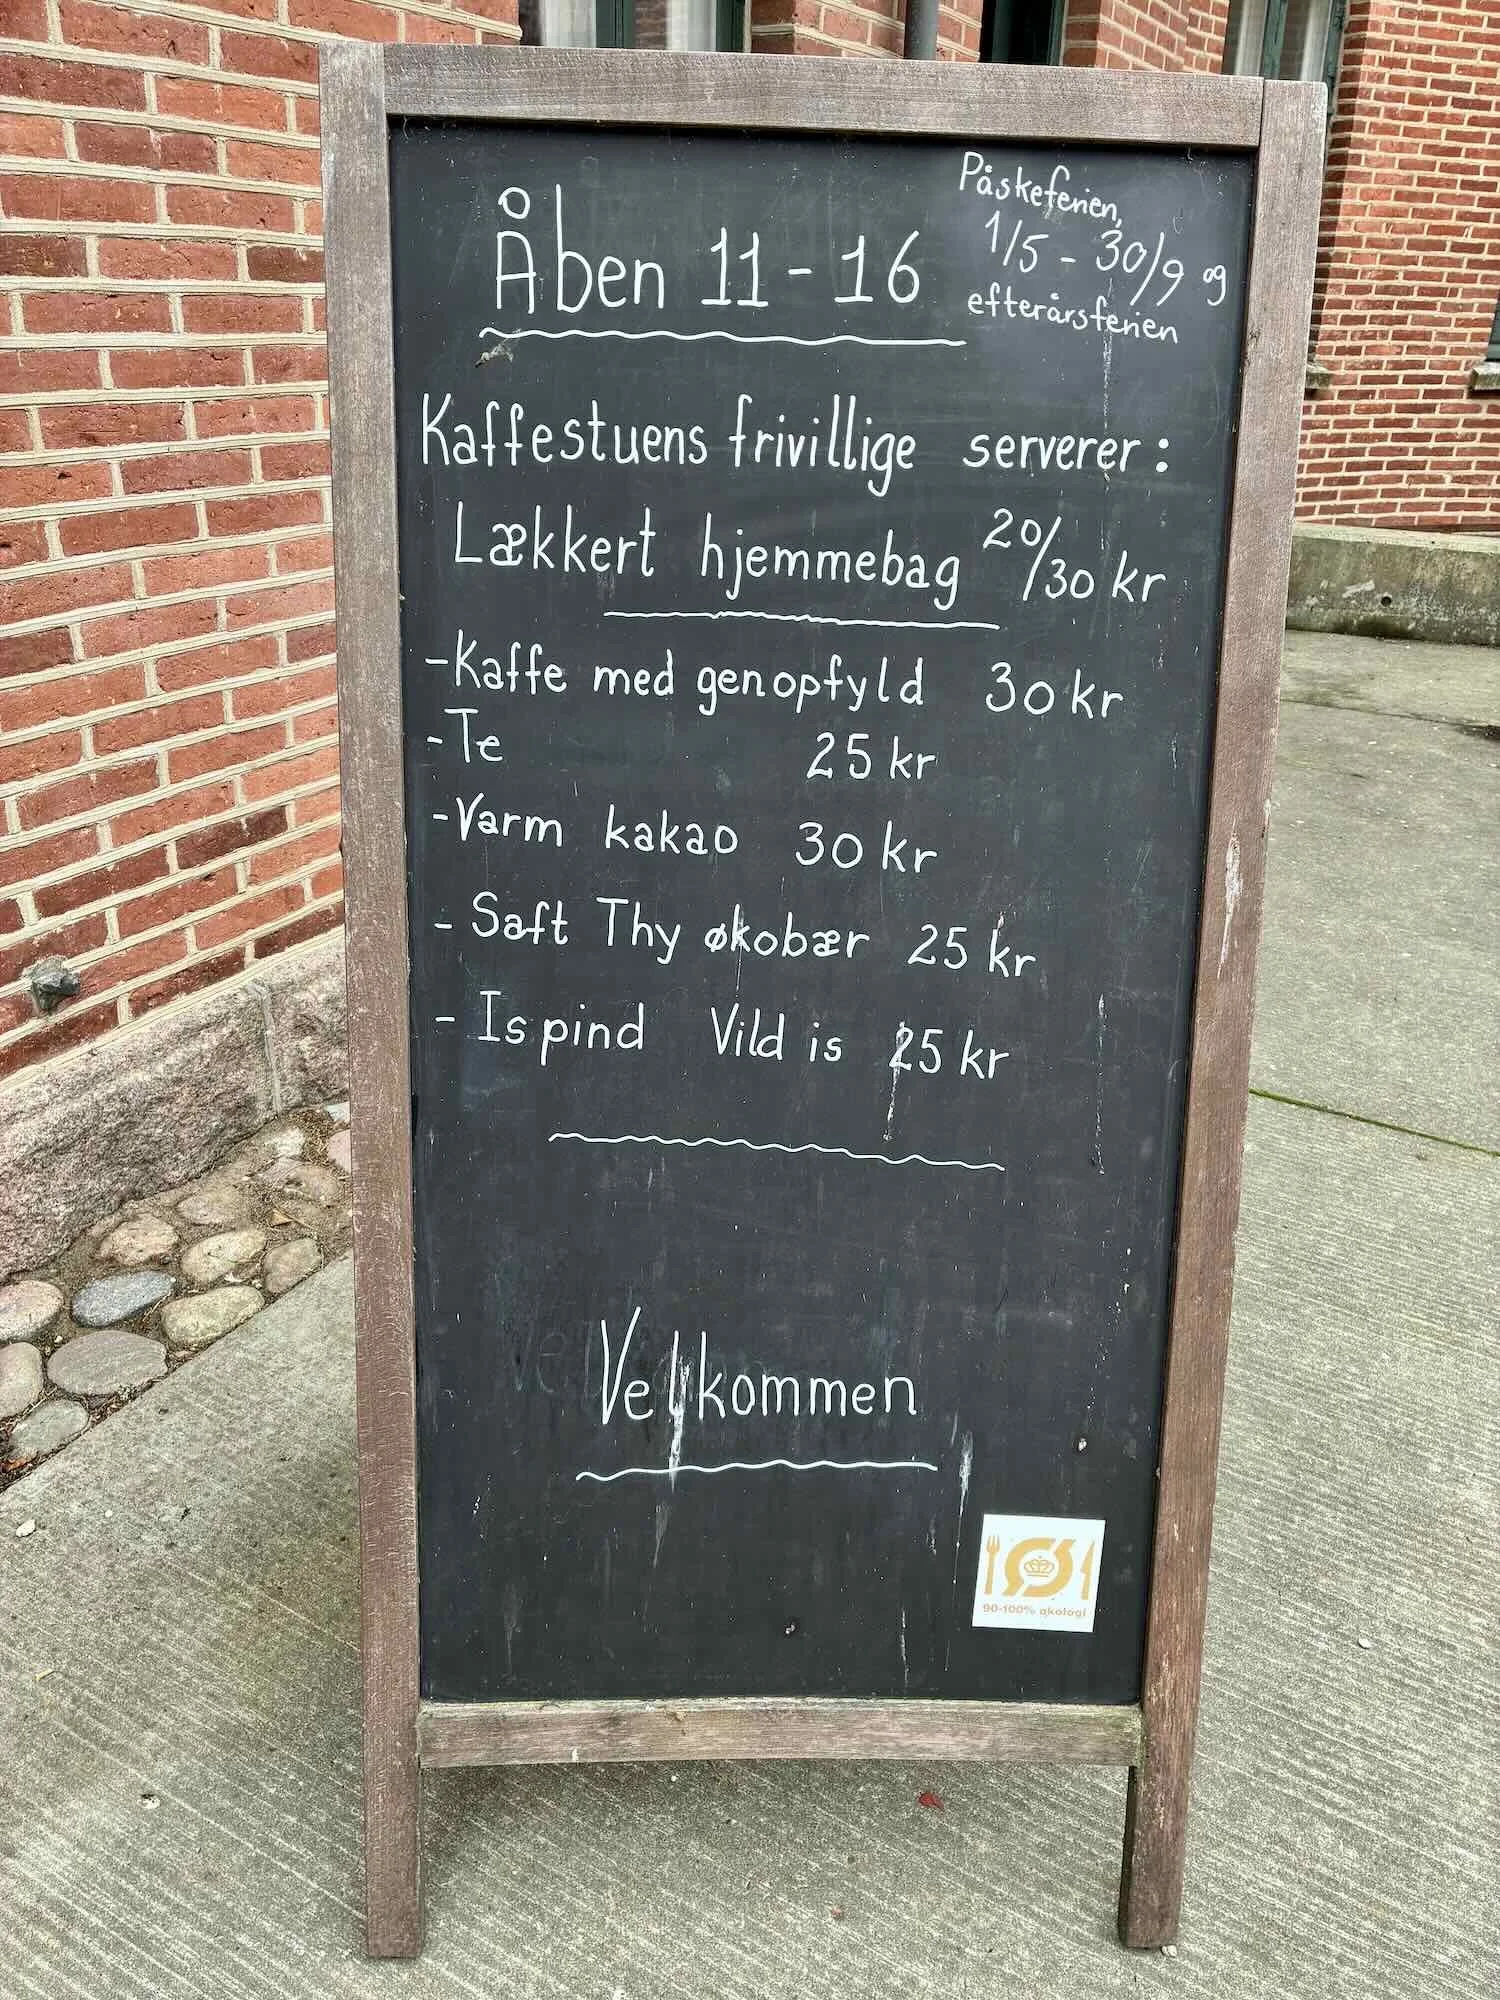 Åben 11-16
Påskeferien,
1/5 - 30/9 og
efterårsferien
Kaffestuens frivillige serverer:
Lækkert hjemmebag 20/30 kr
-Kaffe med genopfyld 30 kr
-Te 25 kr
-Varm kakao 30 kr
- Saft Thy økobær 25 kr
- Ispind Vild is 25 kr
Velkommen
Ø
90-100% økologi